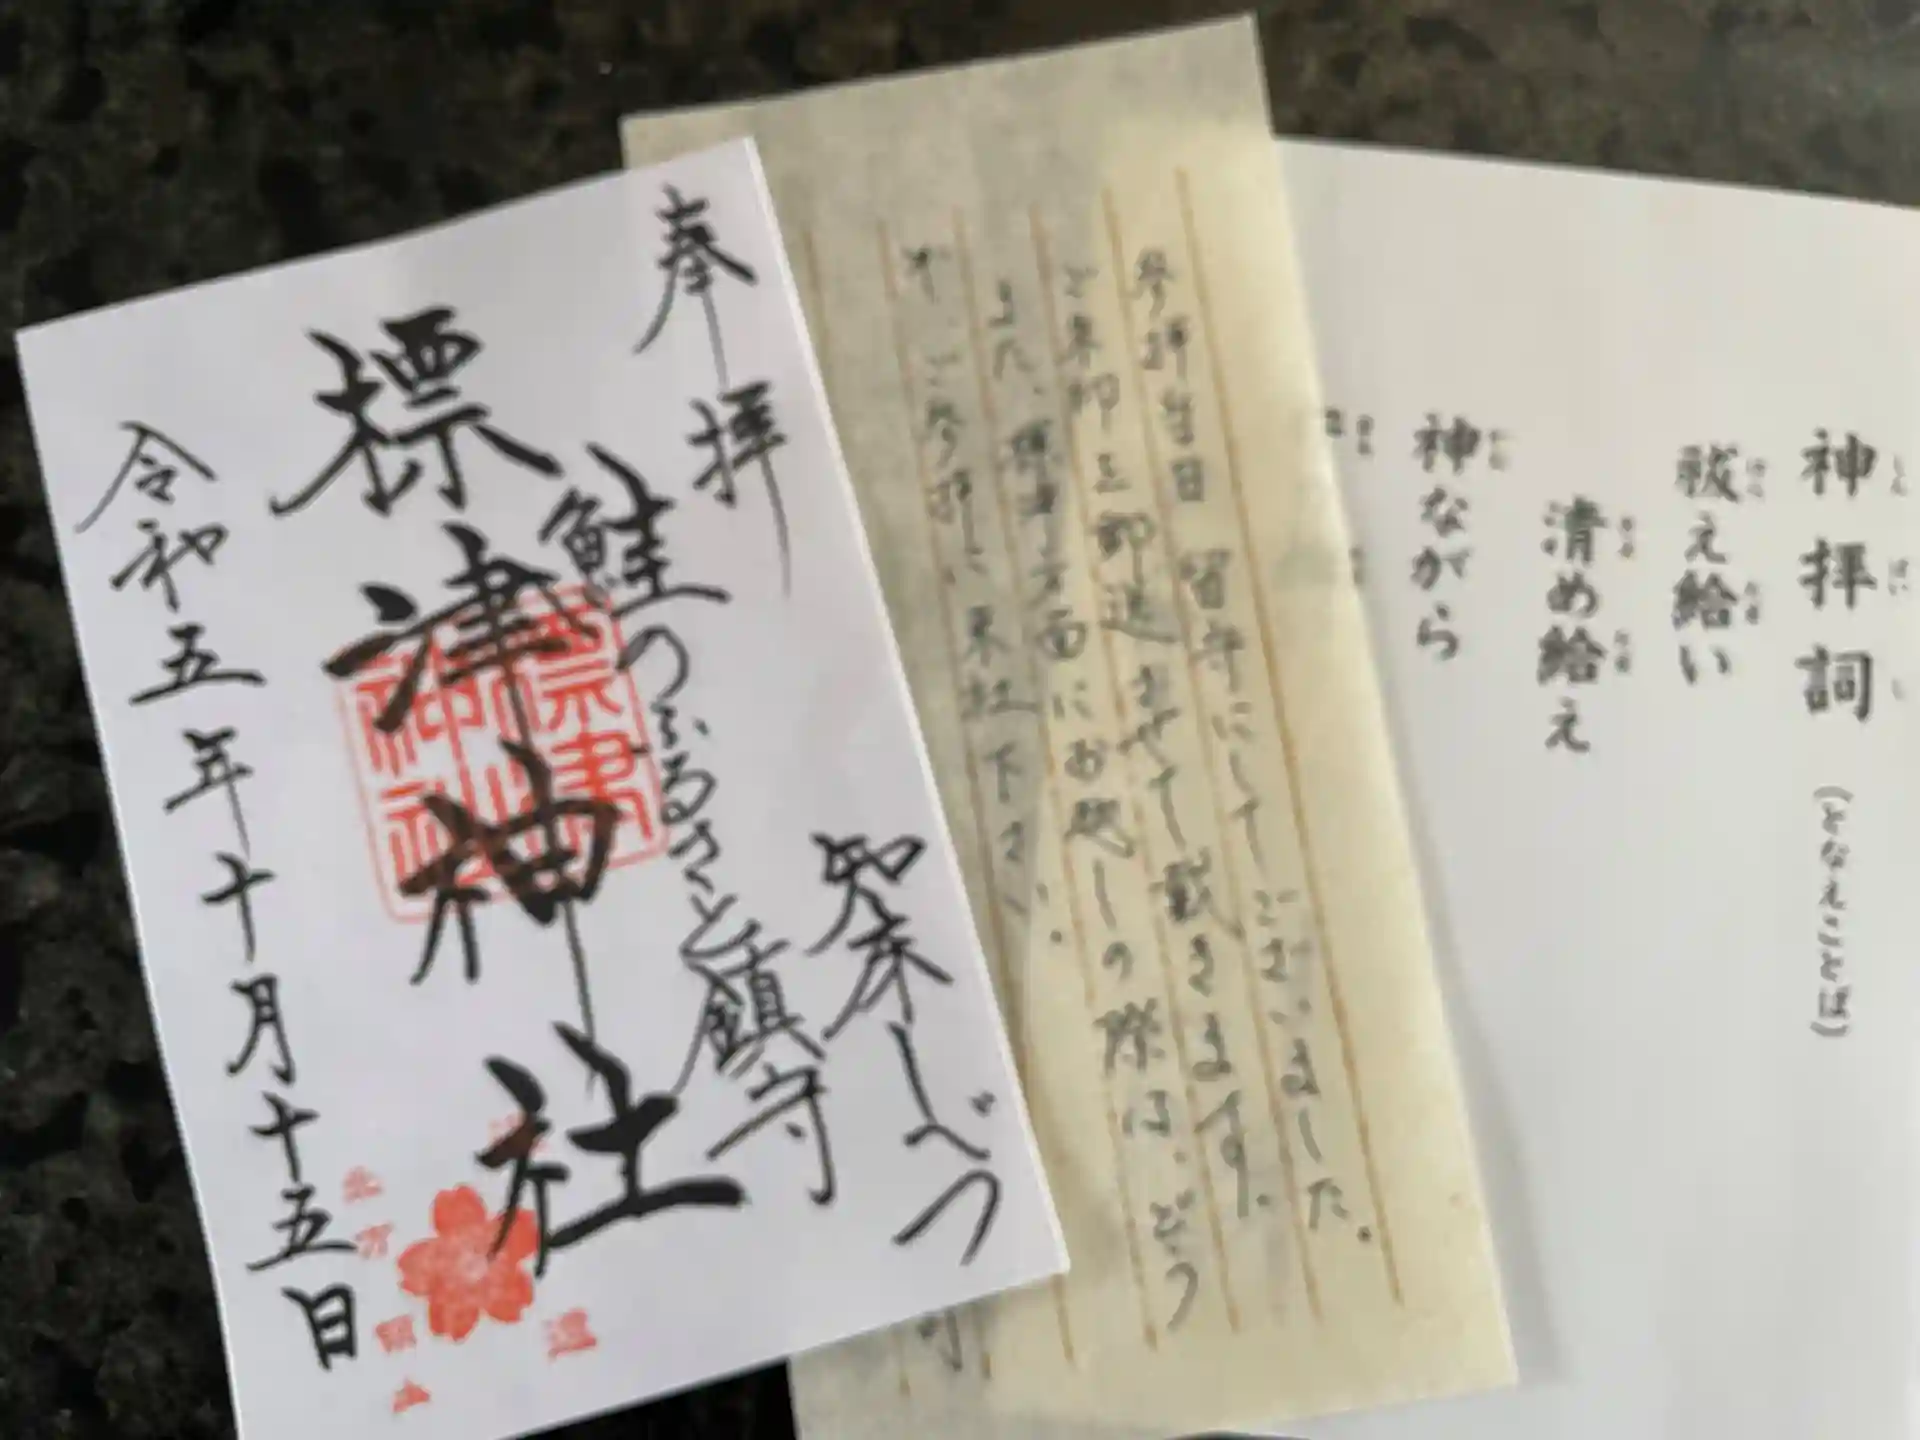 奉拝
知床しべつ
鮭のふるさと鎮守
標津神社
令和五年十月十五日
参拝当日留守にしてございました。
ご朱印を郵送させて戴きます。
また、標津方面にお越しの際は、どう
ぞ、ご参拝に来社下さい。
神拝詞(となえことば)
祓え給い
清め給え
神ながら